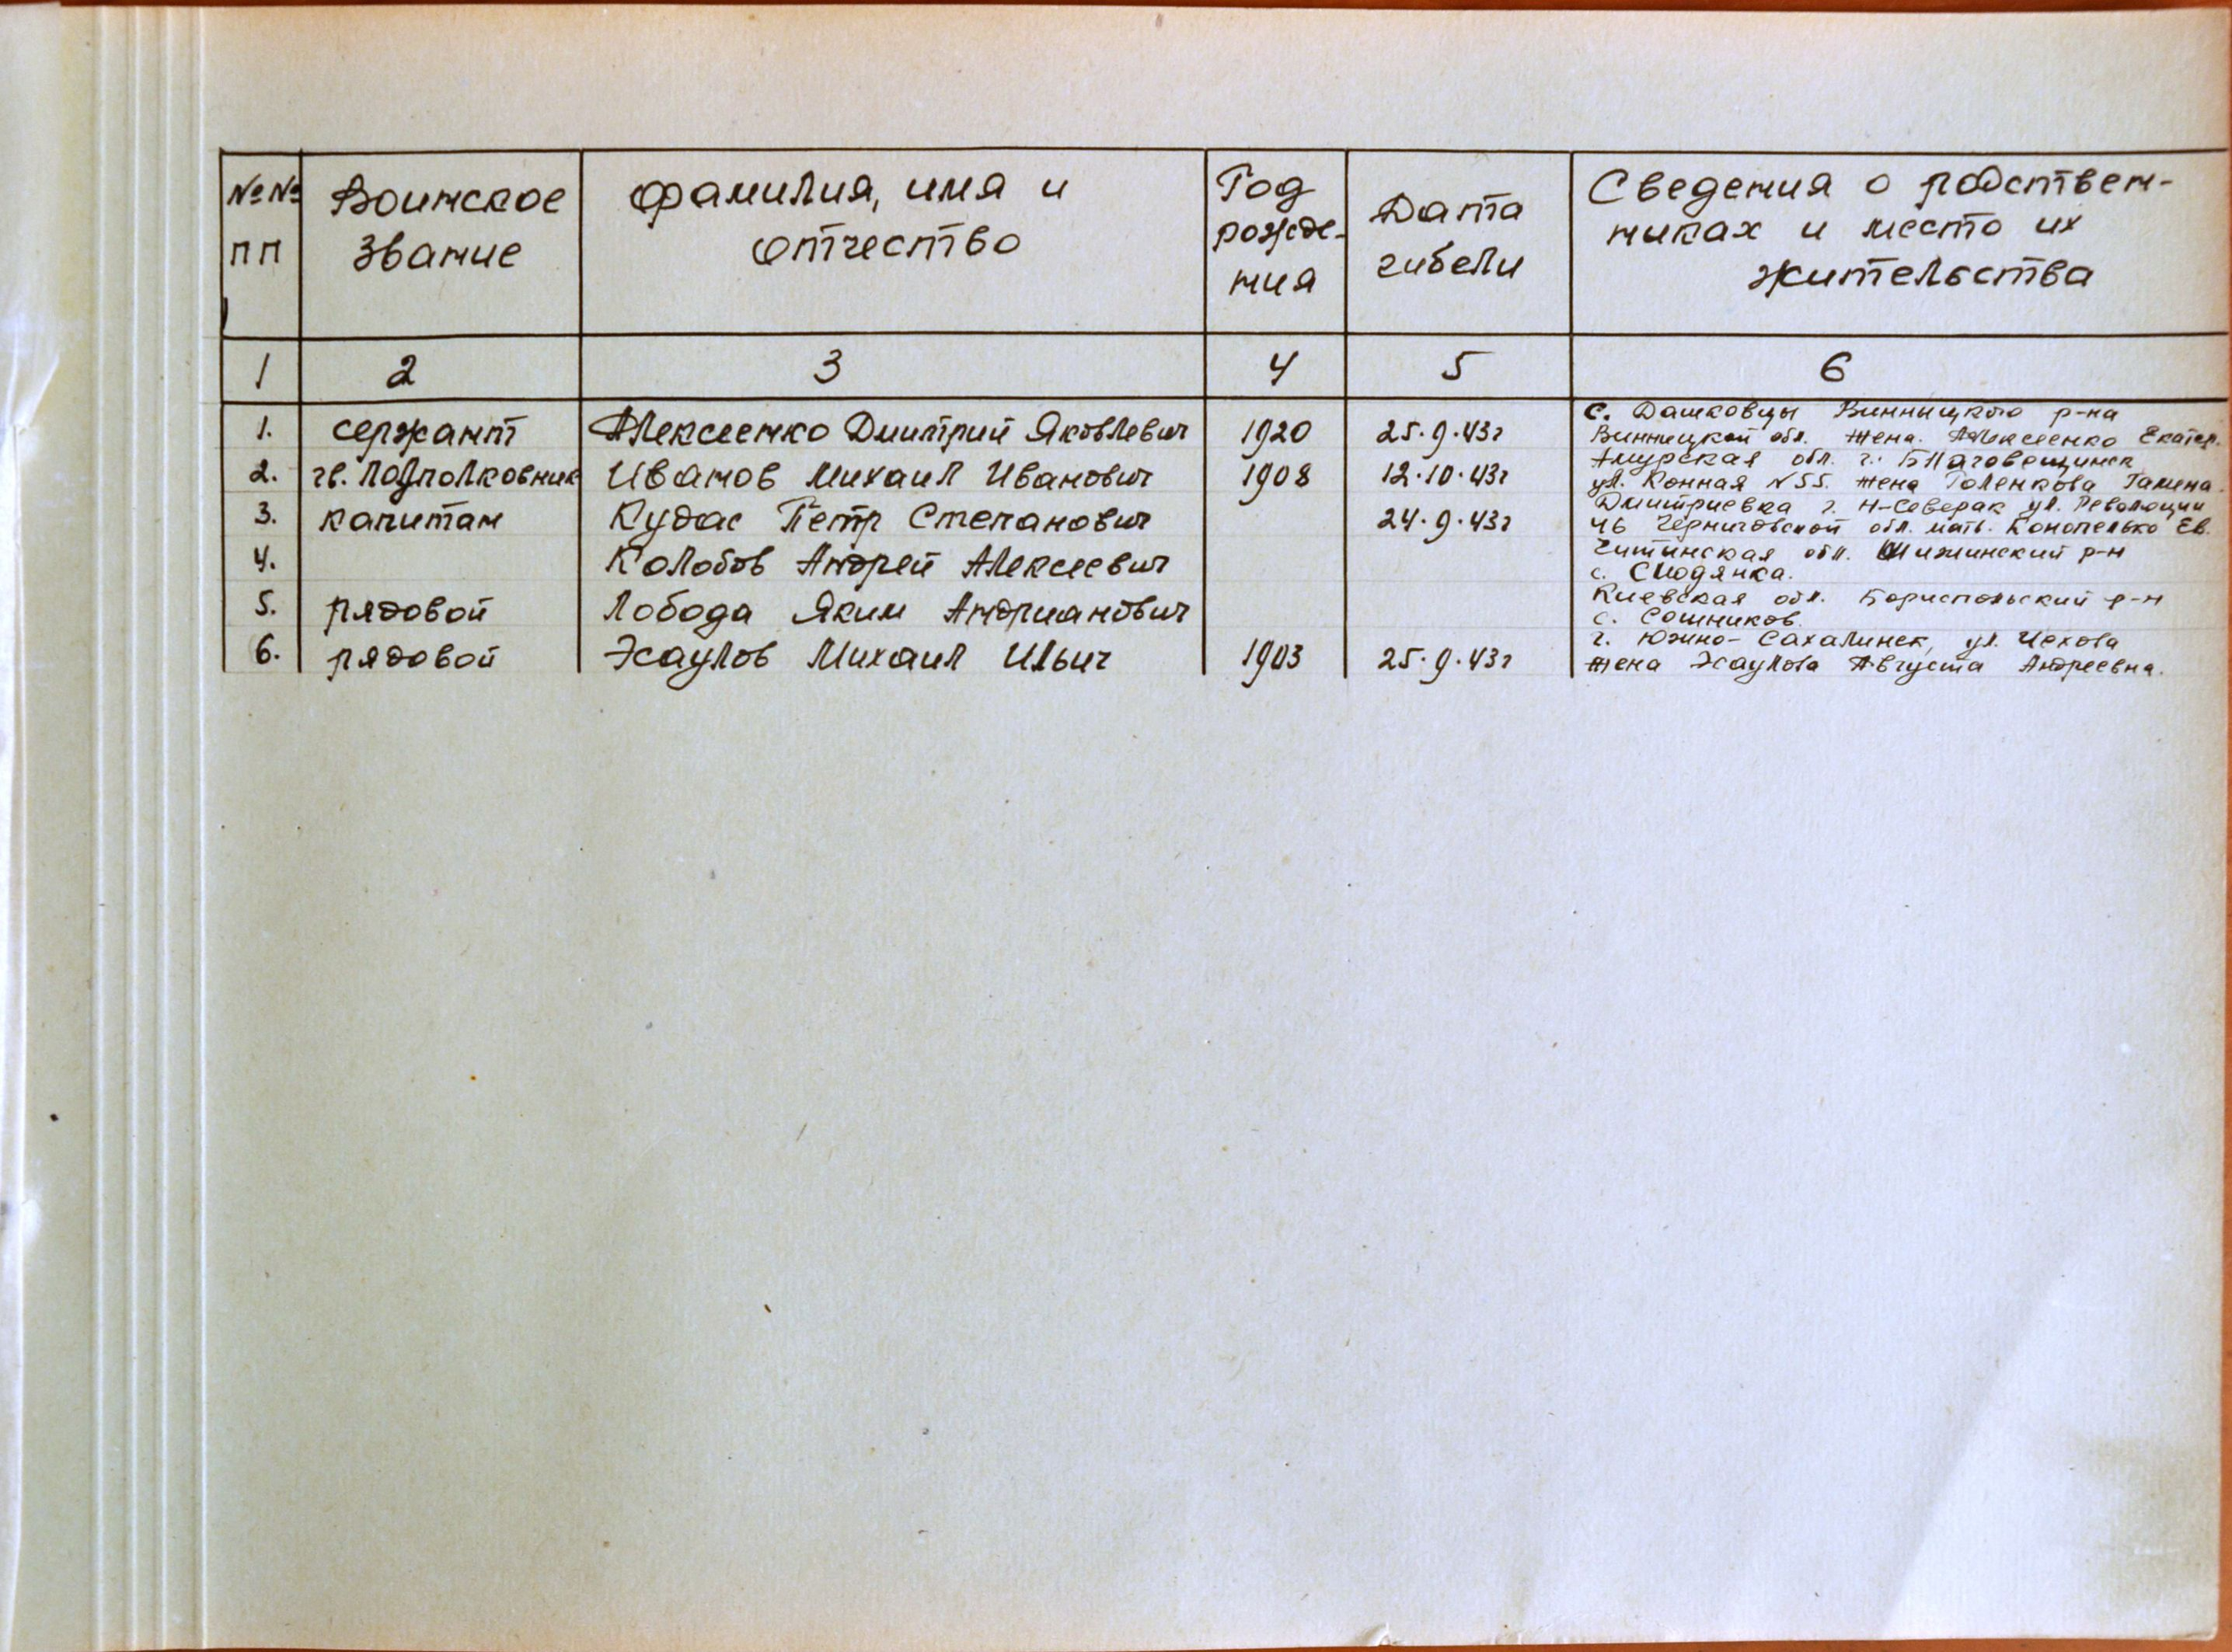 №№ пп Воинское звание Фамилия, имя и отчество Год рожде-ния Дата гибели Сведения о родствен-никах и место их жительства
1 2 3 4 5 6
с. Дашковцы Винницкого р-на
1. сержант Алексеенко Дмитрий Яковлевич 1920 25.9.43г Винницкой обл. Жена. Алексеенко Екатер.
Амурская обл. г. Благовещинск
2. гв. подполковник Иванов Михаил Иванович 1908 12.10.43г ул. Конная №55. Жена Галенкова Галина.
Дмитриевка г. Н-Северск ул. Революции
3. капитан Кудас Петр Степанович 24.9.43г 46 Черниговской обл. мать. Конопелько Ев.
Читинская обл. р-н
4. Колобов Андрей Алексеевич с. Слюдянка.
Киевская обл. Бориспольский р-н
5. рядовой Лобода Яким Андрианович с. Сошников.
г. Южно-Сахалинск, ул. Чехова
6. рядовой Эсаулов Михаил Ильич 1903 25.9.43г Жена Эсаулова Августа Андреевна.